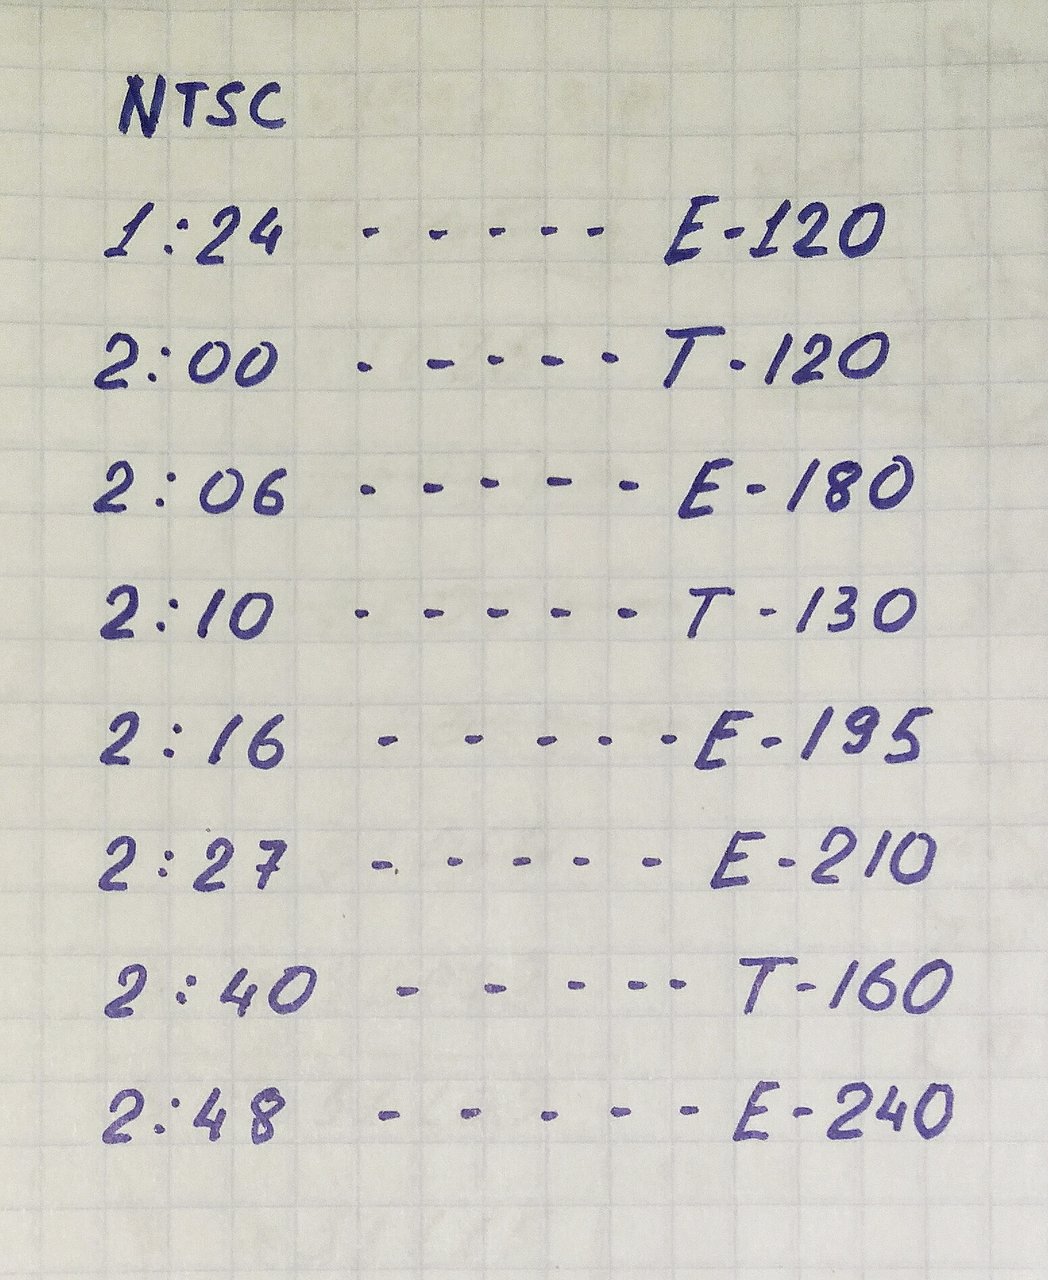 NTSC
1:24 ----- E-120
2:00 ----- T-120
2:06 ----- E-180
2:10 ----- T-130
2:16 ----- E-195
2:27 ----- E-210
2:40 ----- T-160
2:48 ----- E-240